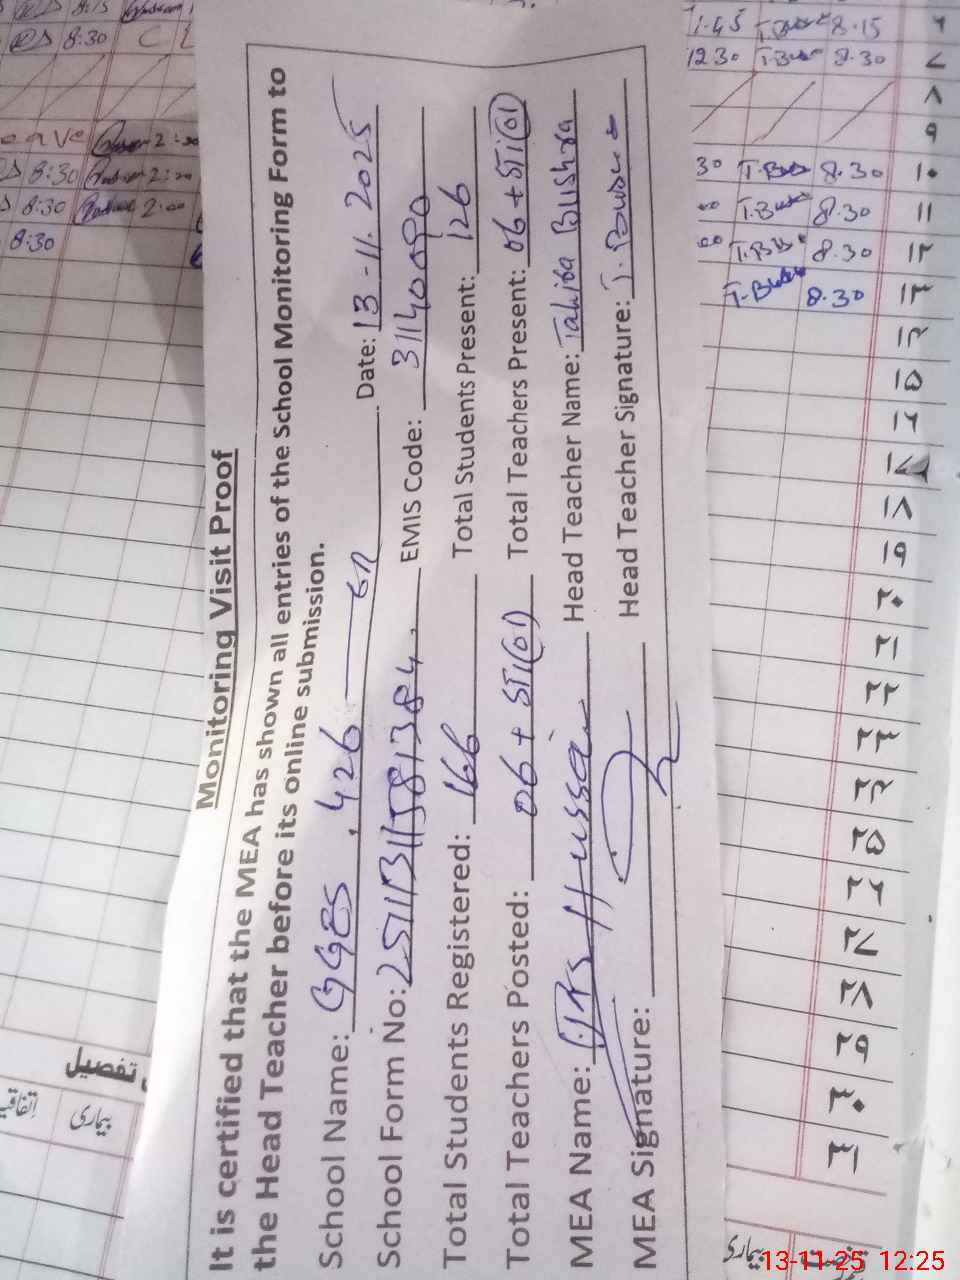 Monitoring Visit Proof
It is certified that the MEA has shown all entries of the School Monitoring Form to
the Head Teacher before its online submission.
School Name: GGES, 426 6R Date: 13-11-2025
School Form No: EMIS Code: 31140090
Total Students Registered: 166 Total Students Present: 126
Total Teachers Posted: 06 + STI(01) Total Teachers Present: 06 + STI(01)
MEA Name: Hussain Head Teacher Name: Tahira Bushra
MEA Signature: Head Teacher Signature: T. Bushra
8:15
8:30 C L
2:00
8:30 2:00
8:30 2:00
8:30
1.45 T.Bush 8.15 ٦
12.30 T.Bush 8.30 ٧
٨
٩
30 T.Bush 8.30 ١٠
00 T.Bush 8.30 ١١
00 T.Bush 8.30 ١٢
T.Bush 8.30 ١٣
١٤
١٥
١٦
١٧
١٨
١٩
٢٠
٢١
٢٢
٢٣
٢٤
٢٥
٢٦
٢٧
٢٨
٢٩
٣٠
٣١
تفصیل
بیماری
بیماری
13-11-25 12:25